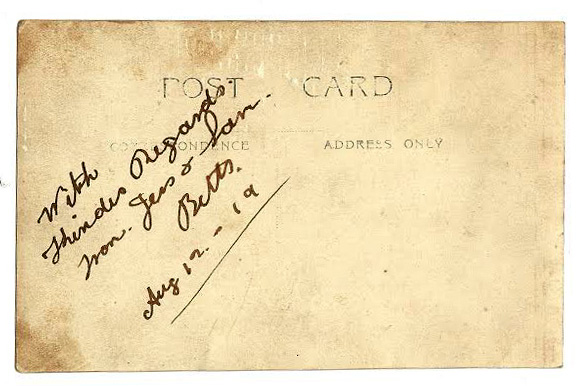 POST CARD
CORRESPONDENCE
ADDRESS ONLY
With
Regards
Jess &
Betts.
Aug 12. - 19